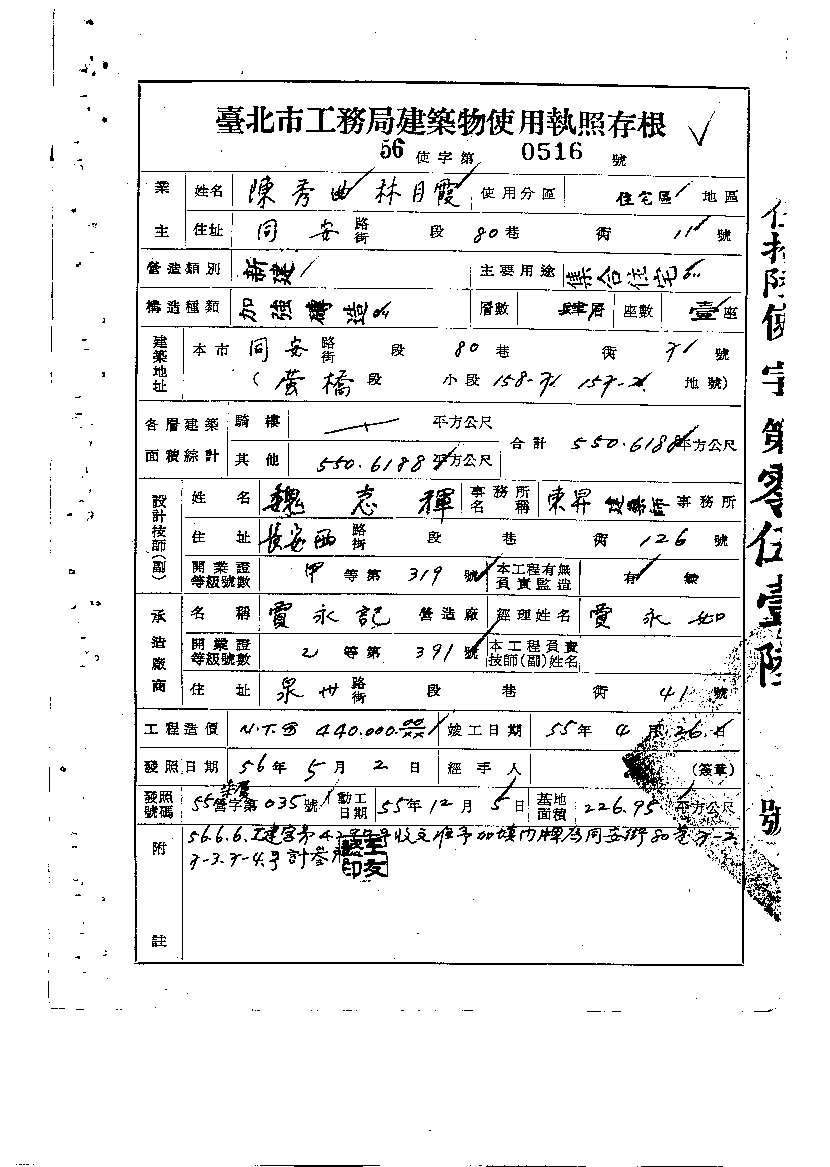 臺北市工務局建築物使用執照存根
56 使字第 0516 號
業主 姓名 陳秀曲 林月霞 使用分區 住宅區 地區
住址 同安 路街 段 80 巷 衖 11 號
營造類別 新建 主要用途 集合住宅
構造種類 加強磚造 層數 肆層 座數 壹座
建築地址 本市 同安 路街 段 80 巷 衖 號
(螢橋 段 小段 地號)
各層建築面積綜計 騎樓 平方公尺 合計 550.6188 平方公尺
其他 550.6188 平方公尺
設計技師(副) 姓名 魏志輝 事務所名稱 東昇建築師 事務所
住址 長安西 路街 段 巷 衖 126 號
開業證等級號數 甲 等第 319 號 本工程有無負責監造 有 無
承造廠商 名稱 賈永記 營造廠 經理姓名 賈永
開業證等級號數 乙 等第 391 號 本工程負責技師(副)姓名
住址 泉州 路街 段 巷 衖 41 號
工程造價 N.T.$ 440.000.00/xx 竣工日期 55年 4月 26日
發照日期 56年 5月 2日 經手人 (簽章)
發照號碼 55營字第 035 號 動工日期 55年 12月 5日 基地面積 226.95 平方公尺
附註 56.6.6.
伍拾陸使字第零伍壹陸號